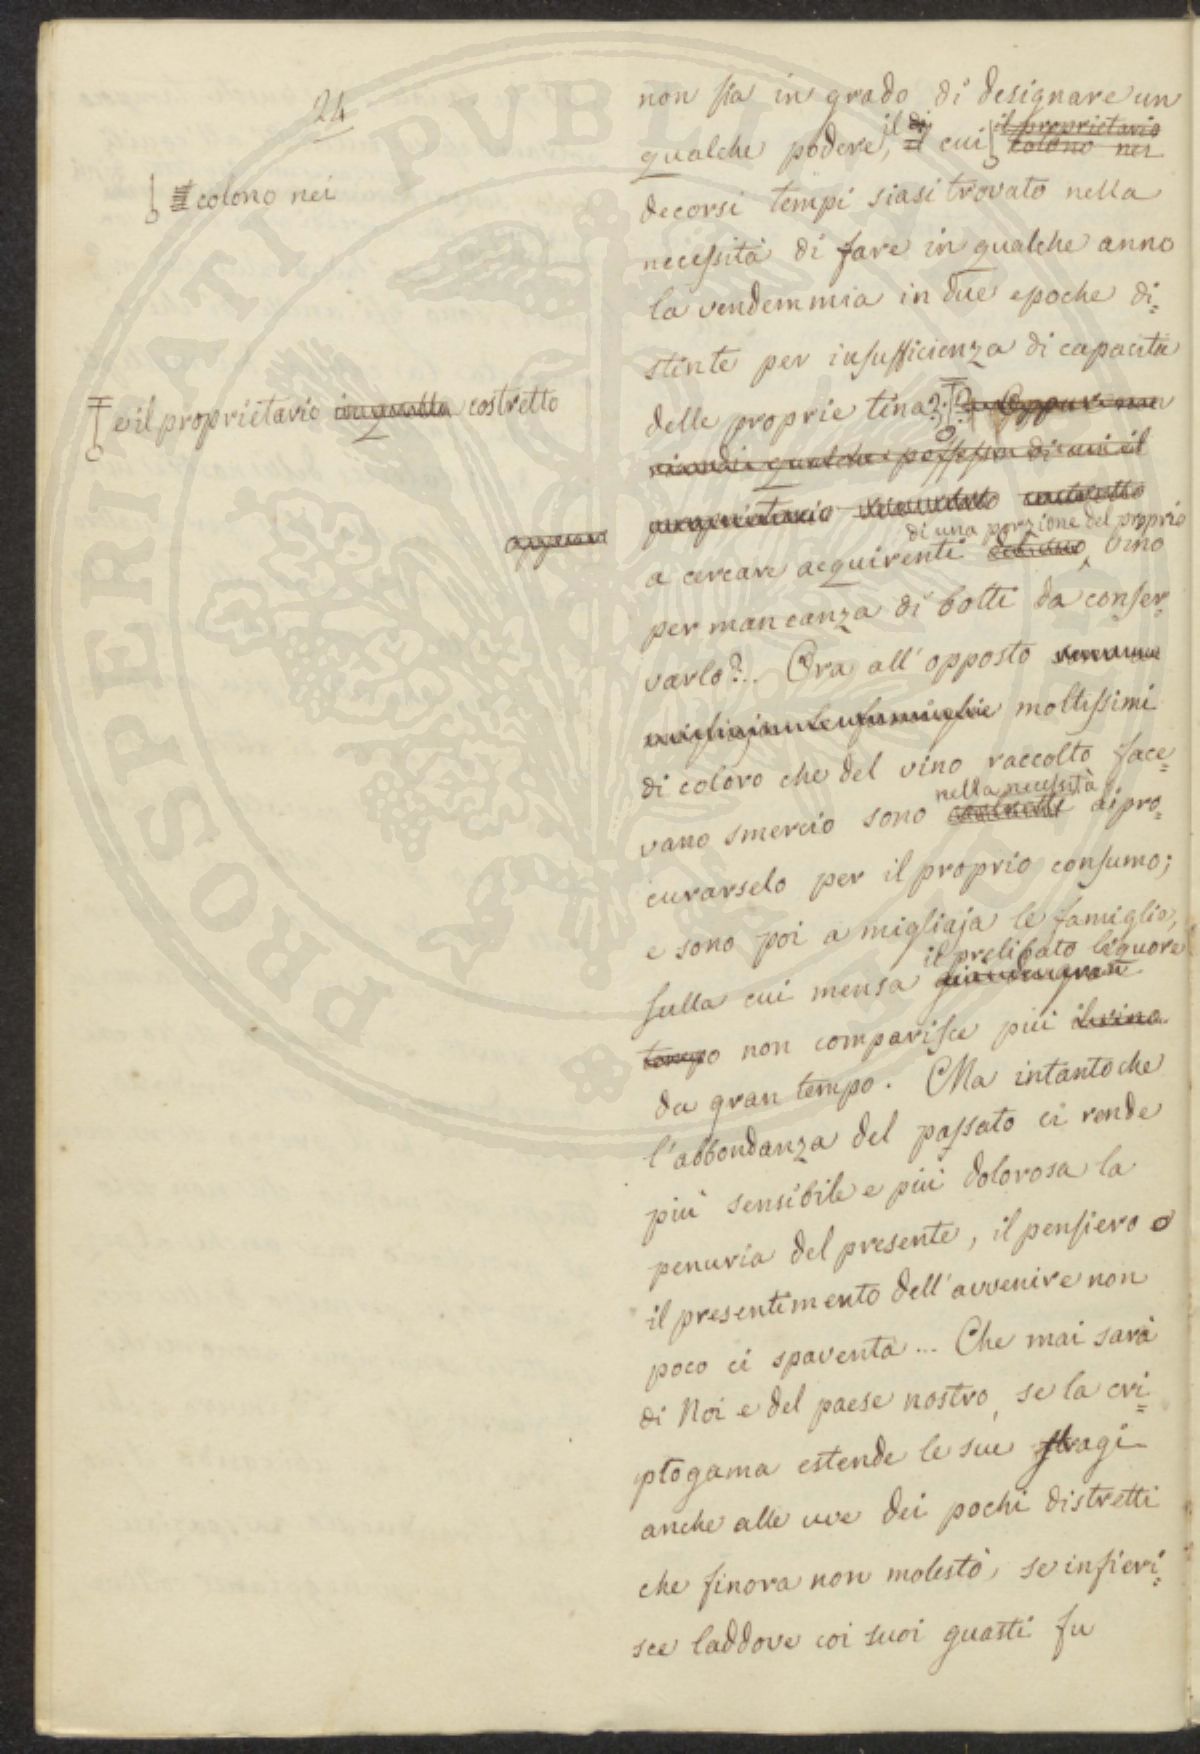 24
colono nei
e il proprietario in quella costretto
oppure
non sia in grado di designare un
qualche podere, il di cui il proprietario colono nei
decorsi tempi siasi trovato nella
necessità di fare in qualche anno
la vendemmia in due epoche di=
stinte per insufficienza di capacità
delle proprie tina?.. Oppure
qualche di cui il
proprietario costretto
di una porzione del proprio
a cercare acquirenti vino
per mancanza di botti da conser=
varlo?.. Ora all'opposto
famiglie moltissimi
di coloro che del vino raccolto face=
nella necessità
vano smercio sono costretti di pro=
curarselo per il proprio consumo;
e sono poi a migliaja le famiglie,
il prelibato liquore
sulla cui mensa gran
tempo non comparisce più il vino
da gran tempo. Ma intanto che
l'abbondanza del passato ci rende
più sensibile e più dolorosa la
penuria del presente, il pensiero o
il presentimento dell'avvenire non
poco ci spaventa... Che mai sarà
di Noi e del paese nostro, se la cri=
ptogama estende le sue stragi
anche alle uve dei pochi distretti
che finora non molestò, se infieri=
sce laddove coi suoi guasti fu
PROSPERITATI PUBLICAE